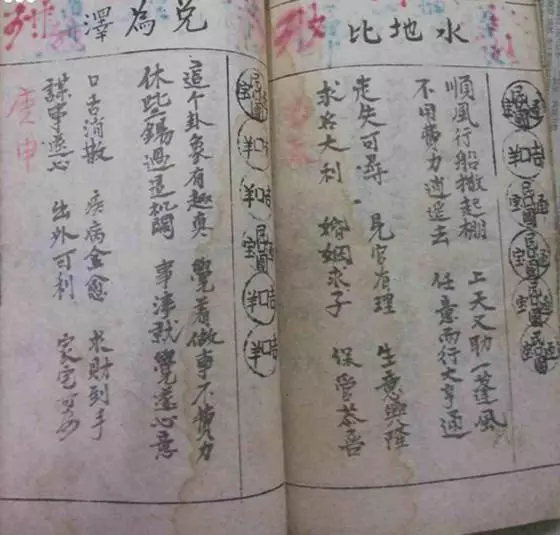 水地比
順風行船撒起棚 上天又助一蓬風
不用費力逍遥去 任意而行大亨通
走失可尋 見官有理 生意興隆
求名大利 婚姻求子 保管恭喜
兌為澤
這个卦象有趣真 覺着做事不費力
休些錫過這机関 事 就覺遂心意
口舌消散 疾病全愈 求財到手
謀事遂心 出外可利 家宅
庚申